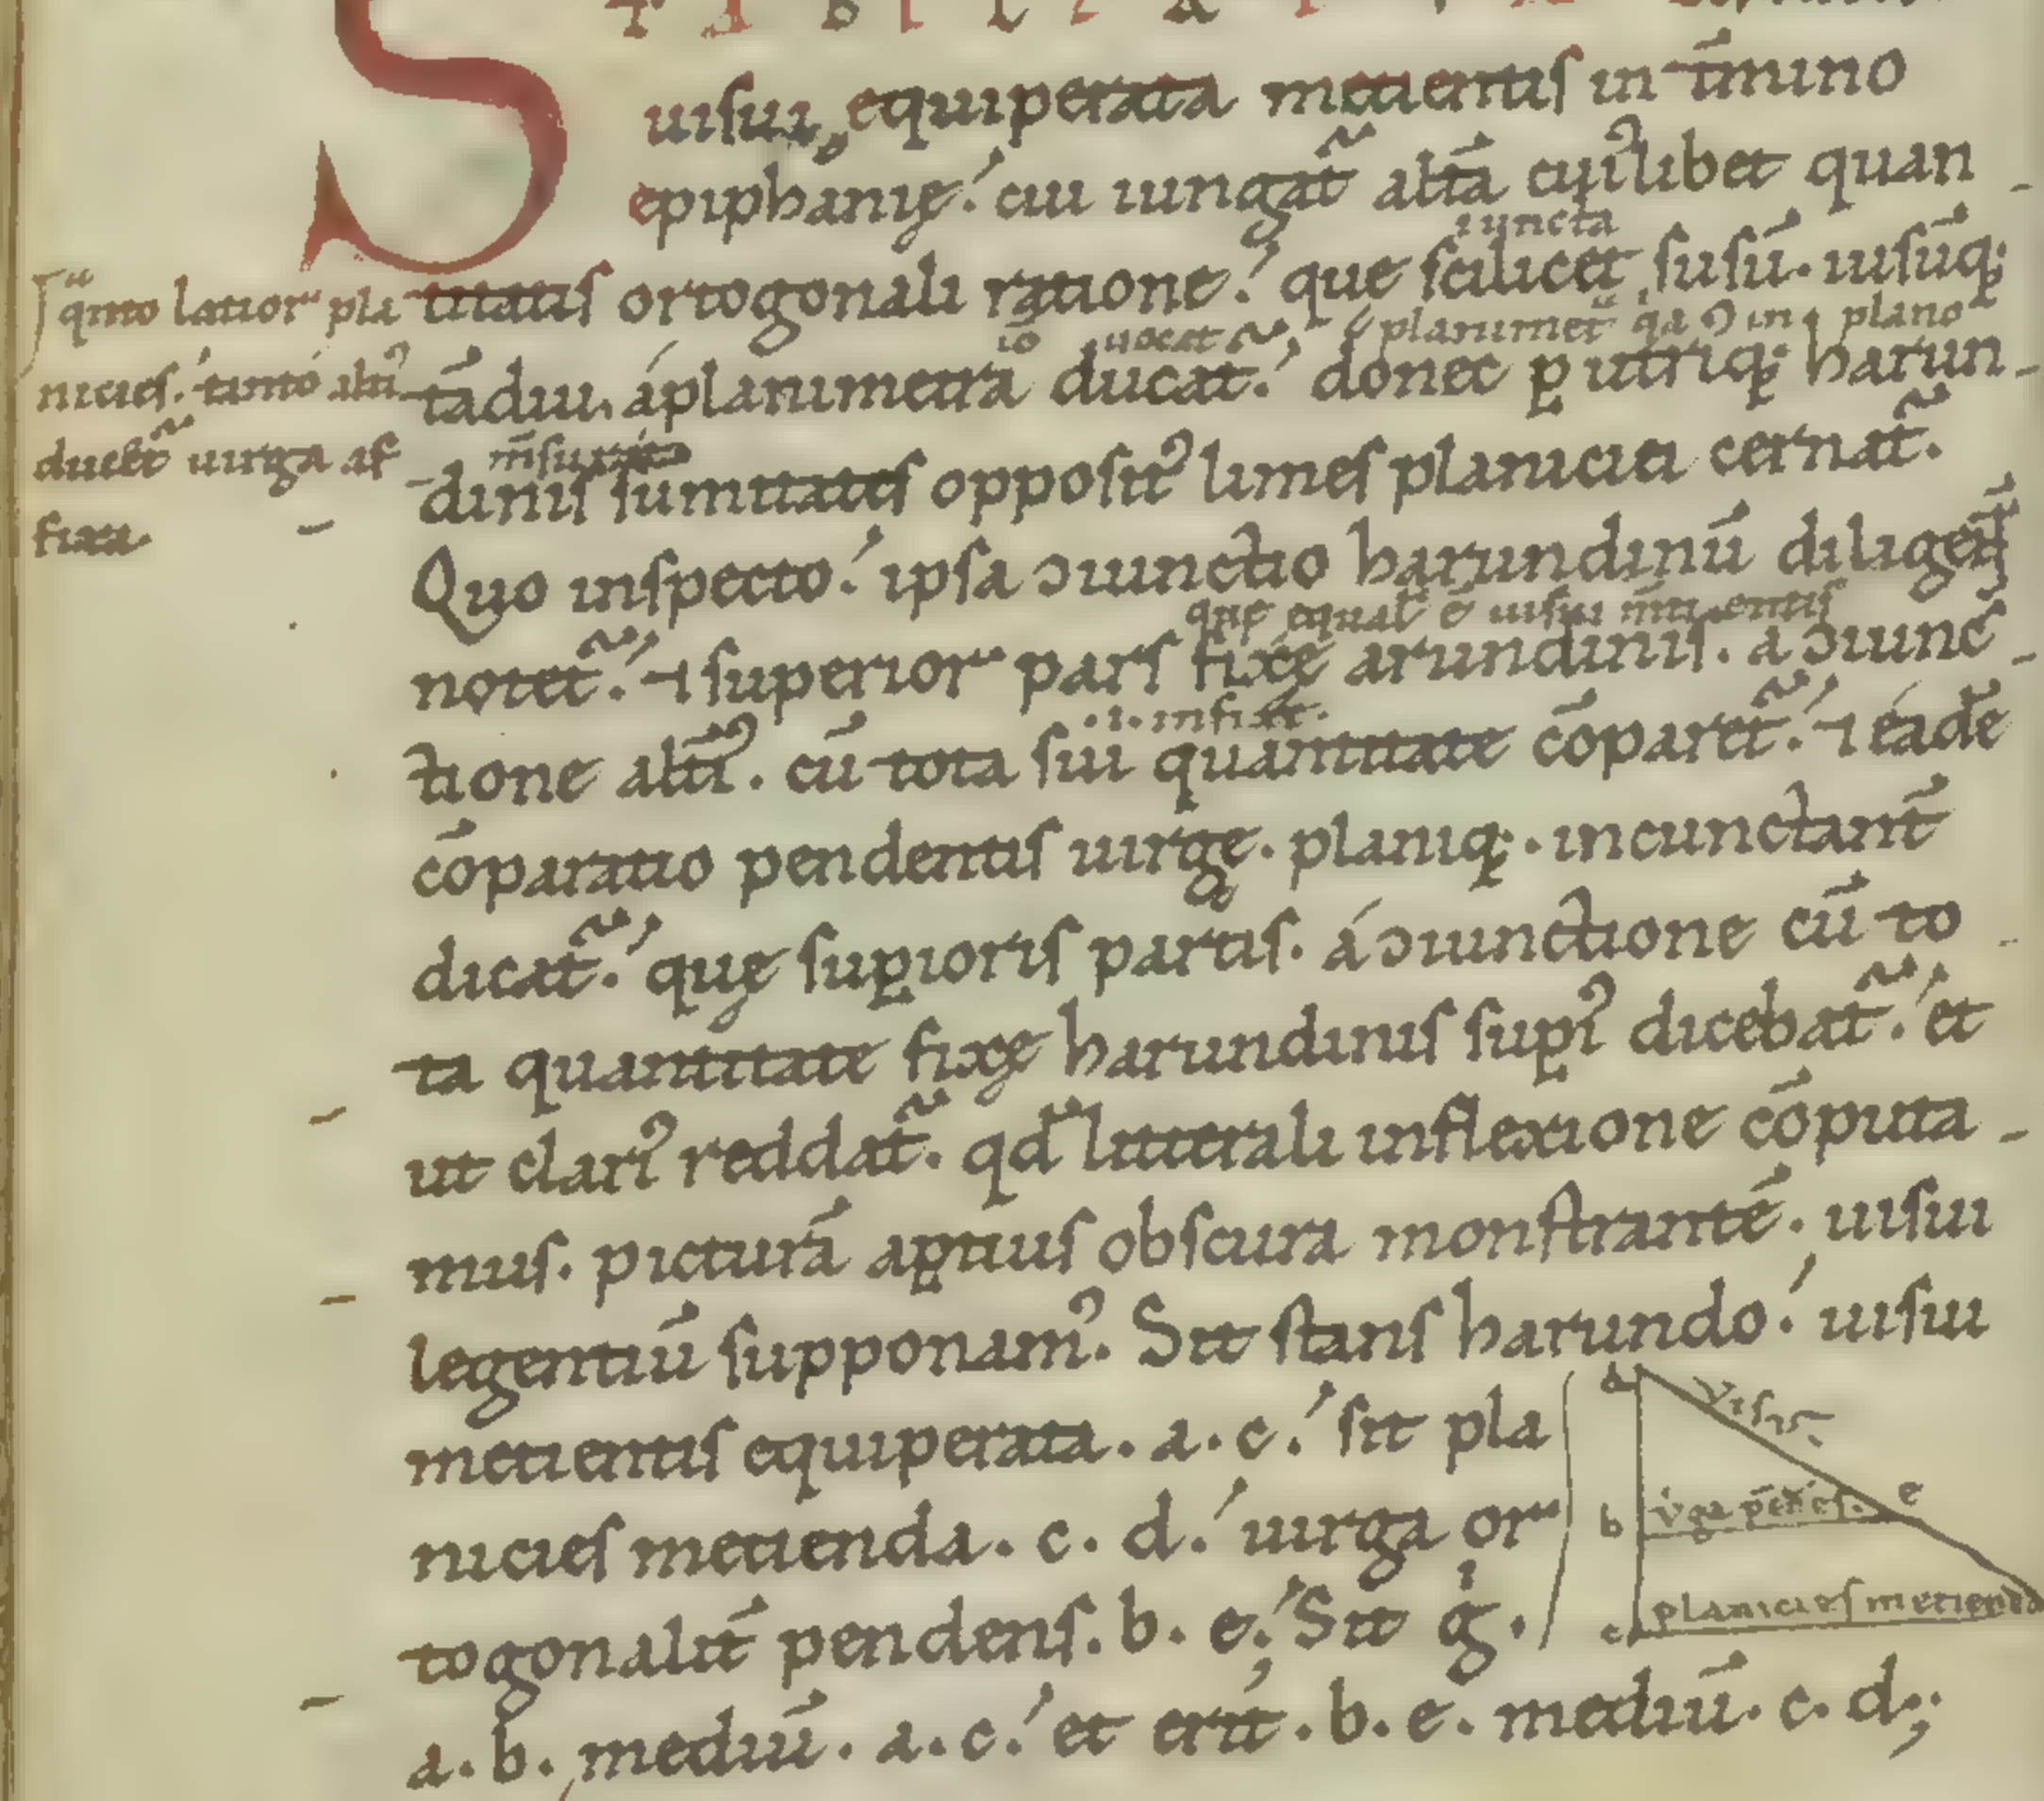 S T A B I L I A T
uisui equiperata metientis in t̄mino
epiphanię.' cui iungat̃ alt̄a cui᾿libet quan
iuncta
titatis ortogonali ratione.' que scilicet susū. iusūq;
uocat planumet̄ q̇a ɔ in plano
tādiu. áplanimetra ducat̃.' donec ꝑ utrīq; harun
m̄surāto
dinis sumitates opposit᾿ limes planiciei cernat̃.
Quo inspecto.' ipsa ɔiunctio harundinū diligent̄
que equal̄ ē uisui m̄tientis
notet̃.' ⁊ superior pars fixę arundinis. a ɔiunc
.i. infixę.
tione alt̄i᾿. cū tota sui quantitate cōparet̃.' ⁊ éadē
cōparatio pendentis uirgę. planiq;. incunctant̄
dicat̃.' quę suꝑioris partis. á ɔiunctione cū to
ta quantitate fixę harundinis suꝑi᾿ dicebat̃.' et
ut clari᾿ reddat̃. qd̄ litterali inflexione cōputa
mus. picturā aꝑtius obscura monstrantē. uisui
legentiū supponam᾿. Sit stans harundo.' uisui
metientis equiperata. a. c.' sit pla
nicies metienda. c. d.' uirga or
togonalit̄ pendens. b. e.' Sit g̍.
a. b. mediū. a. c.' et erit. b. e. mediū. c. d;
ſ q̈nto latior pla
nicies.' tanto alti᾿
ducet̃ uirga af
fixa.
a
uisus
b u̇ga pēdēs. e
c planicies metienda